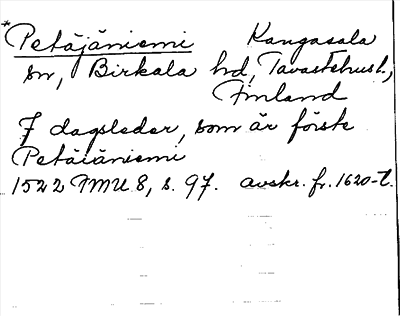 * Petäjäniemi Kangasala
sn, Birkala hd, Tavastehus l.,
Finland
7 dagsleder, som är förste
Petäiäniemi
1522 FMU 8, s. 97. avskr. fr. 1620-t.